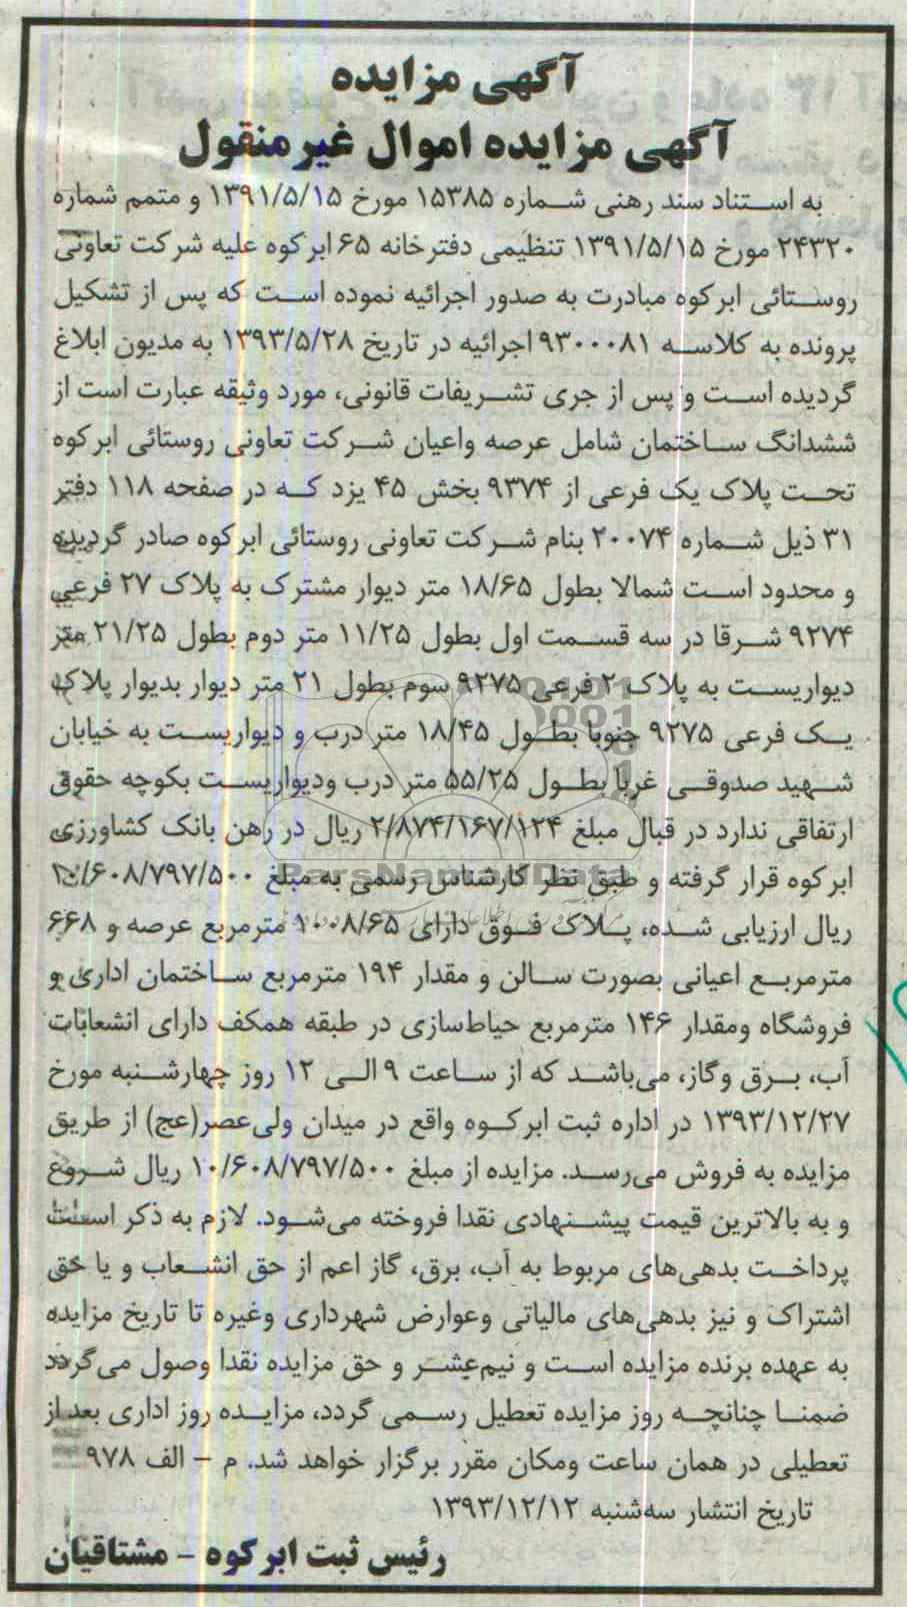 آگهی مزایده
آگهی مزایده اموال غیرمنقول
به استناد سند رهنی شماره ۱۵۳۸۵ مورخ ۱۳۹۱/۵/۱۵ و متمم شماره
۲۴۳۲۰ مورخ ۱۳۹۱/۵/۱۵ تنظیمی دفترخانه ۶۵ ابرکوه علیه شرکت تعاونی
روستائی ابرکوه مبادرت به صدور اجرائیه نموده است که پس از تشکیل
پرونده به کلاسه ۹۳۰۰۰۸۱ اجرائیه در تاریخ ۱۳۹۳/۵/۲۸ به مدیون ابلاغ
گردیده است و پس از جری تشریفات قانونی، مورد وثیقه عبارت است از
ششدانگ ساختمان شامل عرصه واعیان شرکت تعاونی روستائی ابرکوه
تحت پلاک یک فرعی از ۹۳۷۴ بخش ۴۵ یزد که در صفحه ۱۱۸ دفتر
۳۱ ذیل شماره ۲۰۰۷۴ بنام شرکت تعاونی روستائی ابرکوه صادر گردیده
و محدود است شمالا بطول ۱۸/۶۵ متر دیوار مشترک به پلاک ۲۷ فرعی
۹۲۷۴ شرقا در سه قسمت اول بطول ۱۱/۲۵ متر دوم بطول ۲۱/۲۵ متر
دیواریست به پلاک ۲ فرعی ۹۲۷۵ سوم بطول ۲۱ متر دیوار بدیوار پلاک
یک فرعی ۹۲۷۵ جنوبا بطول ۱۸/۴۵ متر درب و دیواریست به خیابان
شهید صدوقی غربا بطول ۵۵/۲۵ متر درب ودیواریست بکوچه حقوق
ارتفاقی ندارد در قبال مبلغ ۲/۸۷۴/۱۶۷/۱۲۴ ریال در رهن بانک کشاورزی
ابرکوه قرار گرفته و طبق نظر کارشناس رسمی به مبلغ ۱۰/۶۰۸/۷۹۷/۵۰۰
ریال ارزیابی شده، پلاک فوق دارای ۱۰۰۸/۶۵ مترمربع عرصه و ۶۶۸
مترمربع اعیانی بصورت سالن و مقدار ۱۹۴ مترمربع ساختمان اداری و
فروشگاه ومقدار ۱۴۶ مترمربع حیاط‌سازی در طبقه همکف دارای انشعابات
آب، برق وگاز، می‌باشد که از ساعت ۹ الی ۱۲ روز چهارشنبه مورخ
۱۳۹۳/۱۲/۲۷ در اداره ثبت ابرکوه واقع در میدان ولی‌عصر(عج) از طریق
مزایده به فروش می‌رسد. مزایده از مبلغ ۱۰/۶۰۸/۷۹۷/۵۰۰ ریال شروع
و به بالاترین قیمت پیشنهادی نقدا فروخته می‌شود. لازم به ذکر است
پرداخت بدهی‌های مربوط به آب، برق، گاز اعم از حق انشعاب و یا حق
اشتراک و نیز بدهی‌های مالیاتی وعوارض شهرداری وغیره تا تاریخ مزایده
به عهده برنده مزایده است و نیم‌عشر و حق مزایده نقدا وصول می‌گردد
ضمنا چنانچه روز مزایده تعطیل رسمی گردد، مزایده روز اداری بعد از
تعطیلی در همان ساعت ومکان مقرر برگزار خواهد شد. م - الف ۹۷۸
تاریخ انتشار سه‌شنبه ۱۳۹۳/۱۲/۱۲
رئیس ثبت ابرکوه - مشتاقیان
ParsNamadData